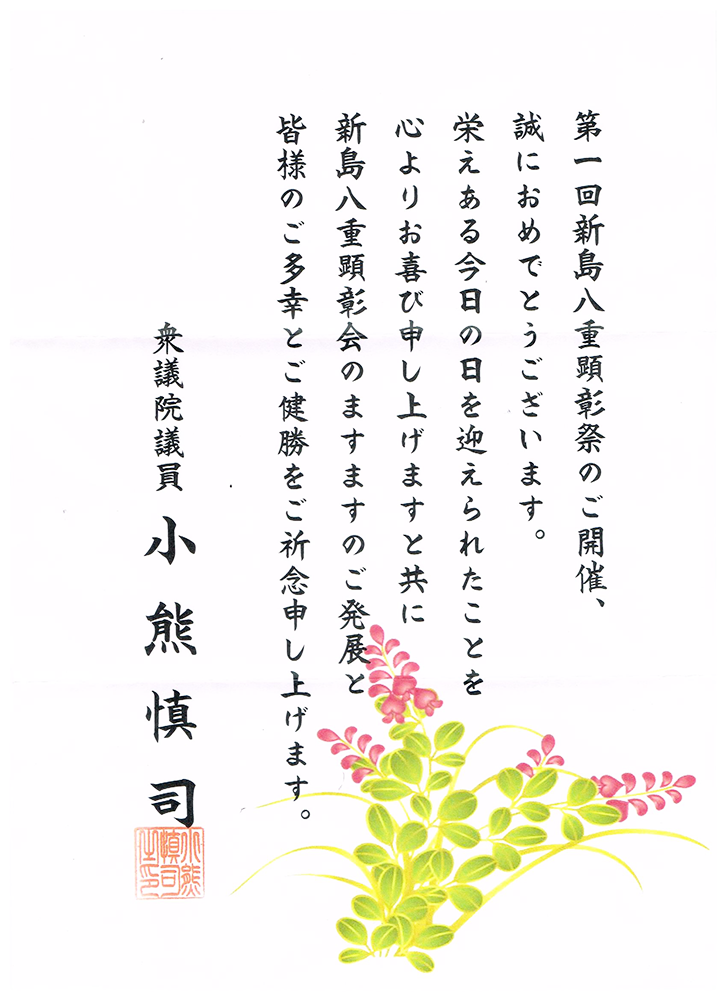 第一回新島八重顕彰祭のご開催、
誠におめでとうございます。
栄えある今日の日を迎えられたことを
心よりお喜び申し上げますと共に
新島八重顕彰会のますますのご発展と
皆様のご多幸とご健勝をご祈念申し上げます。
衆議院議員 小熊慎司
小熊
慎司
之印